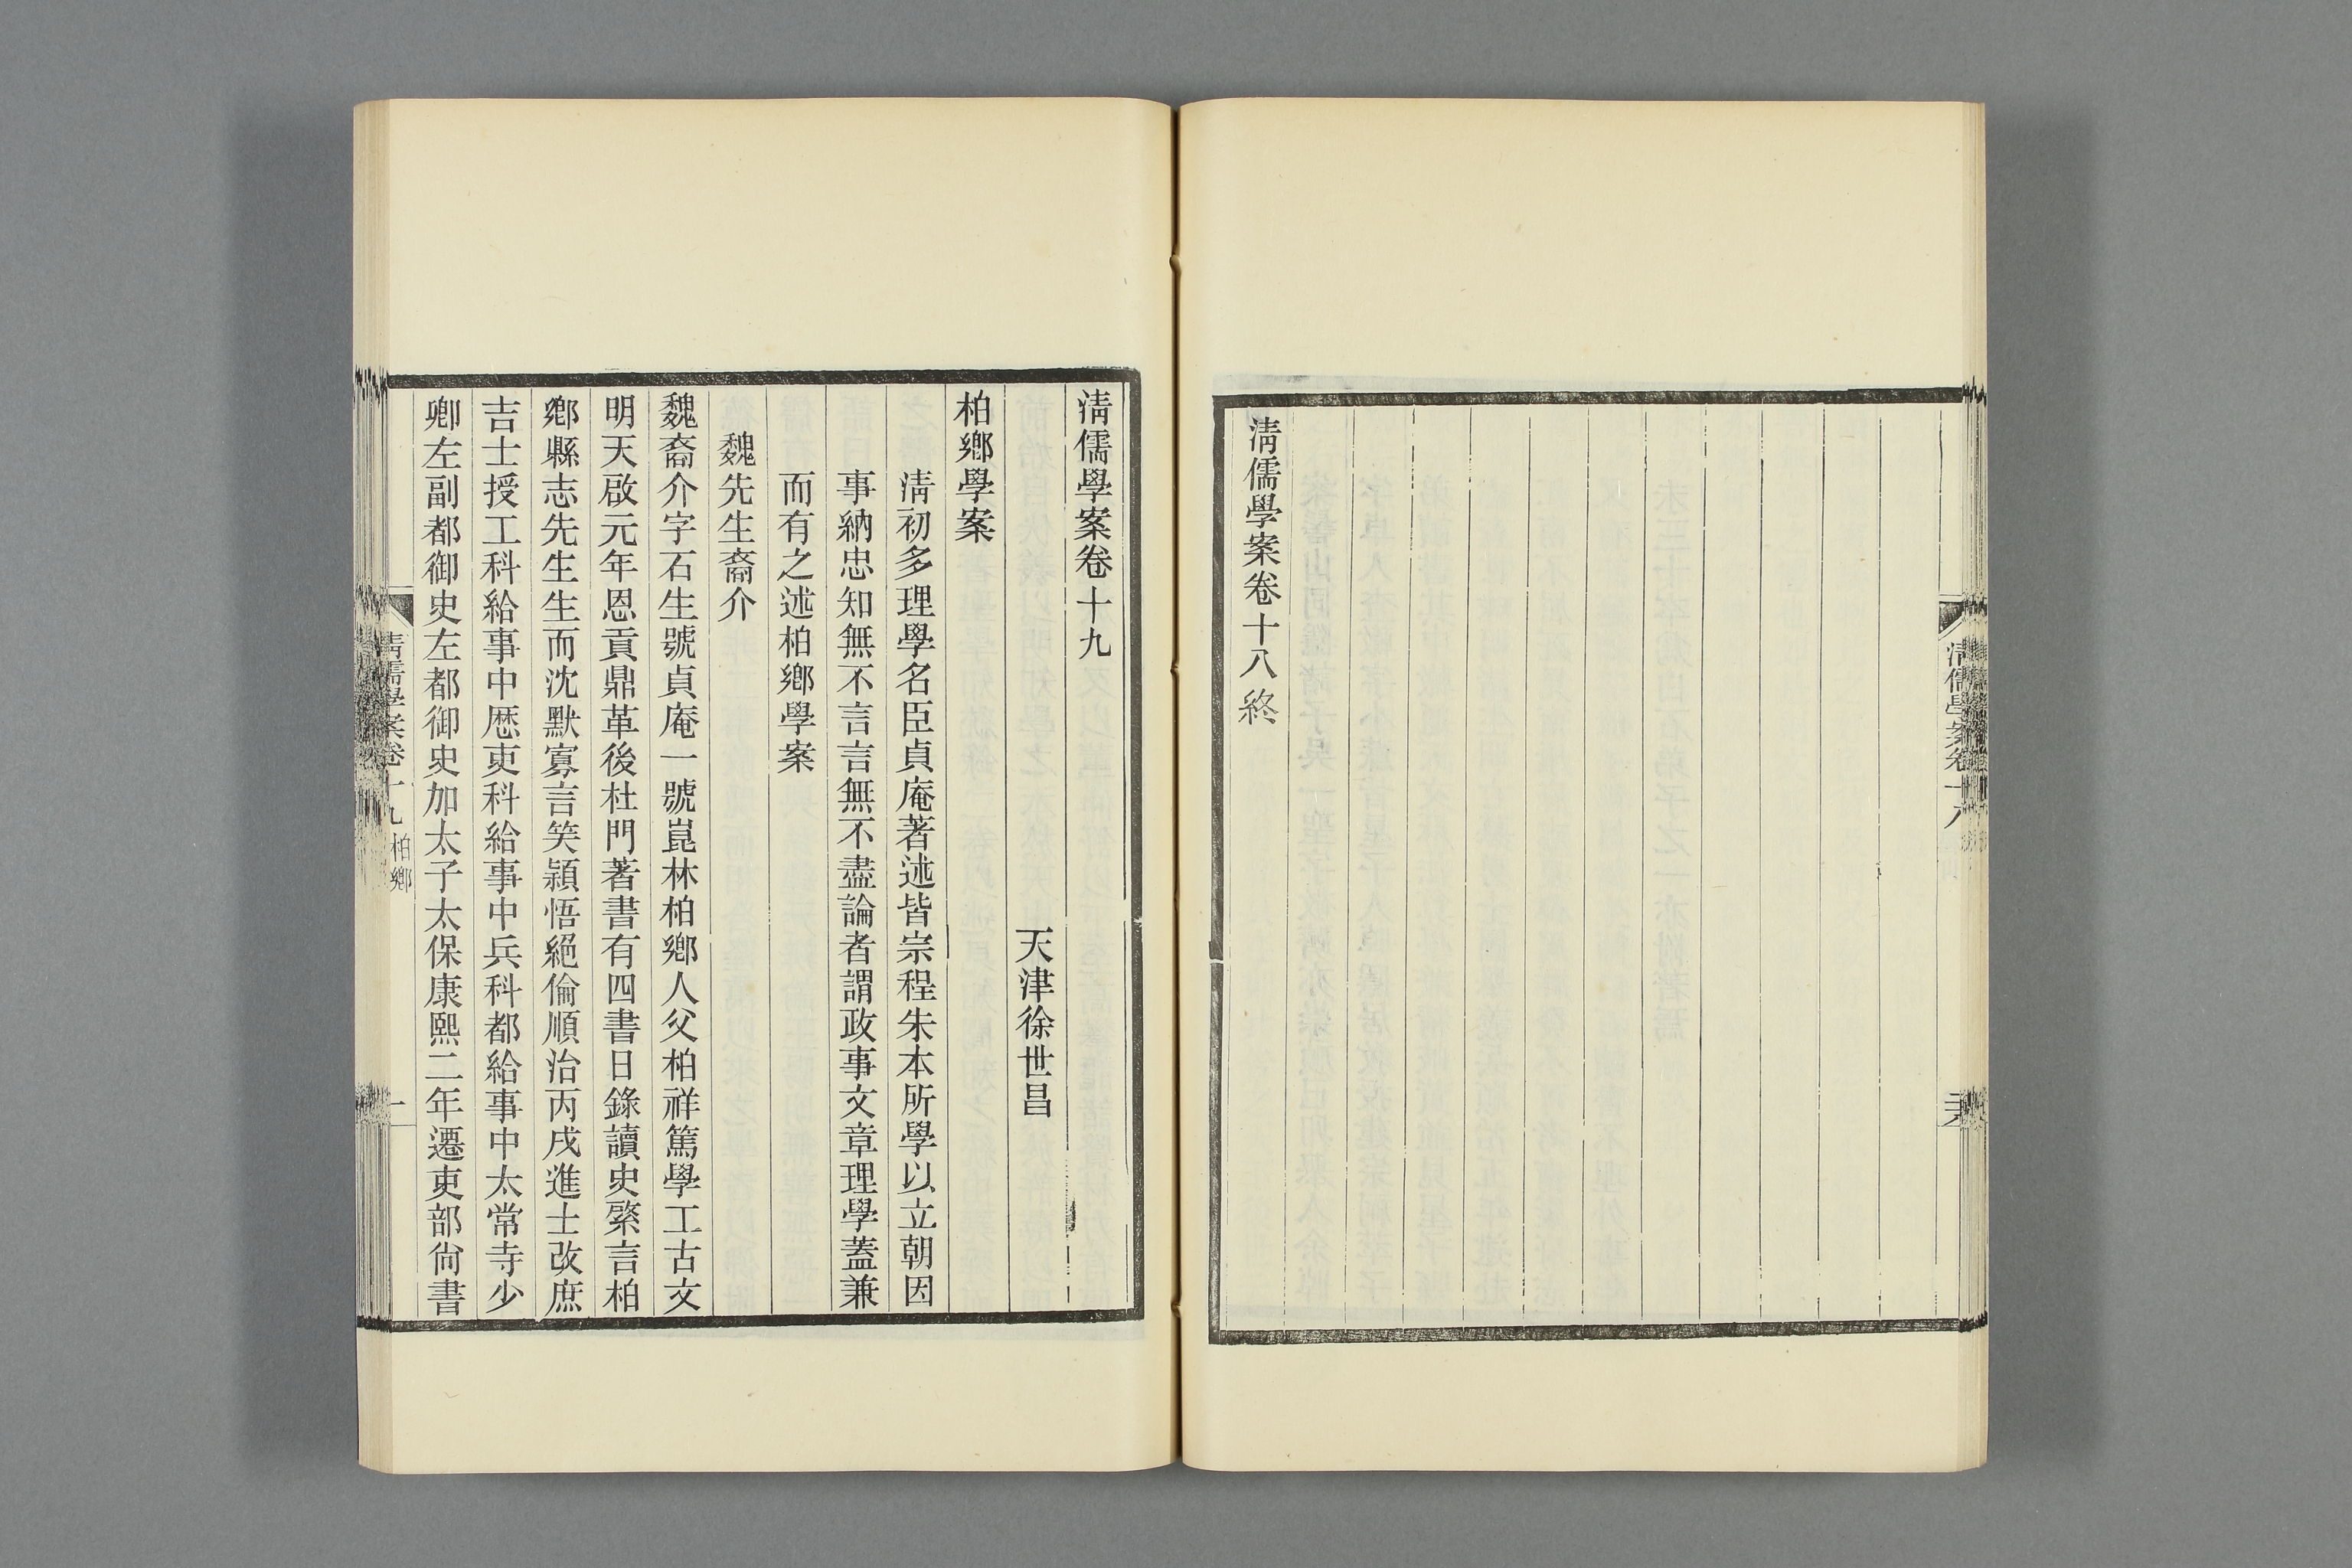 清儒學案卷十八終
清儒學案卷十八
清儒學案卷十九
天津徐世昌
柏鄉學案
清初多理學名臣貞庵著述皆宗程朱本所學以立朝因
事納忠知無不言言無不盡論者謂政事文章理學蓋兼
而有之述柏鄉學案
魏先生裔介
魏裔介字石生號貞庵一號崑林柏鄉人父柏祥篤學工古文
明天啟元年恩貢鼎革後杜門著書有四書日錄讀史綮言柏
鄉縣志先生生而沈默寡言笑穎悟絕倫順治丙戌進士改庶
吉士授工科給事中歷吏科給事中兵科都給事中太常寺少
卿左副都御史左都御史加太子太保康熙二年遷吏部尙書
清儒學案卷十九 柏鄉
一